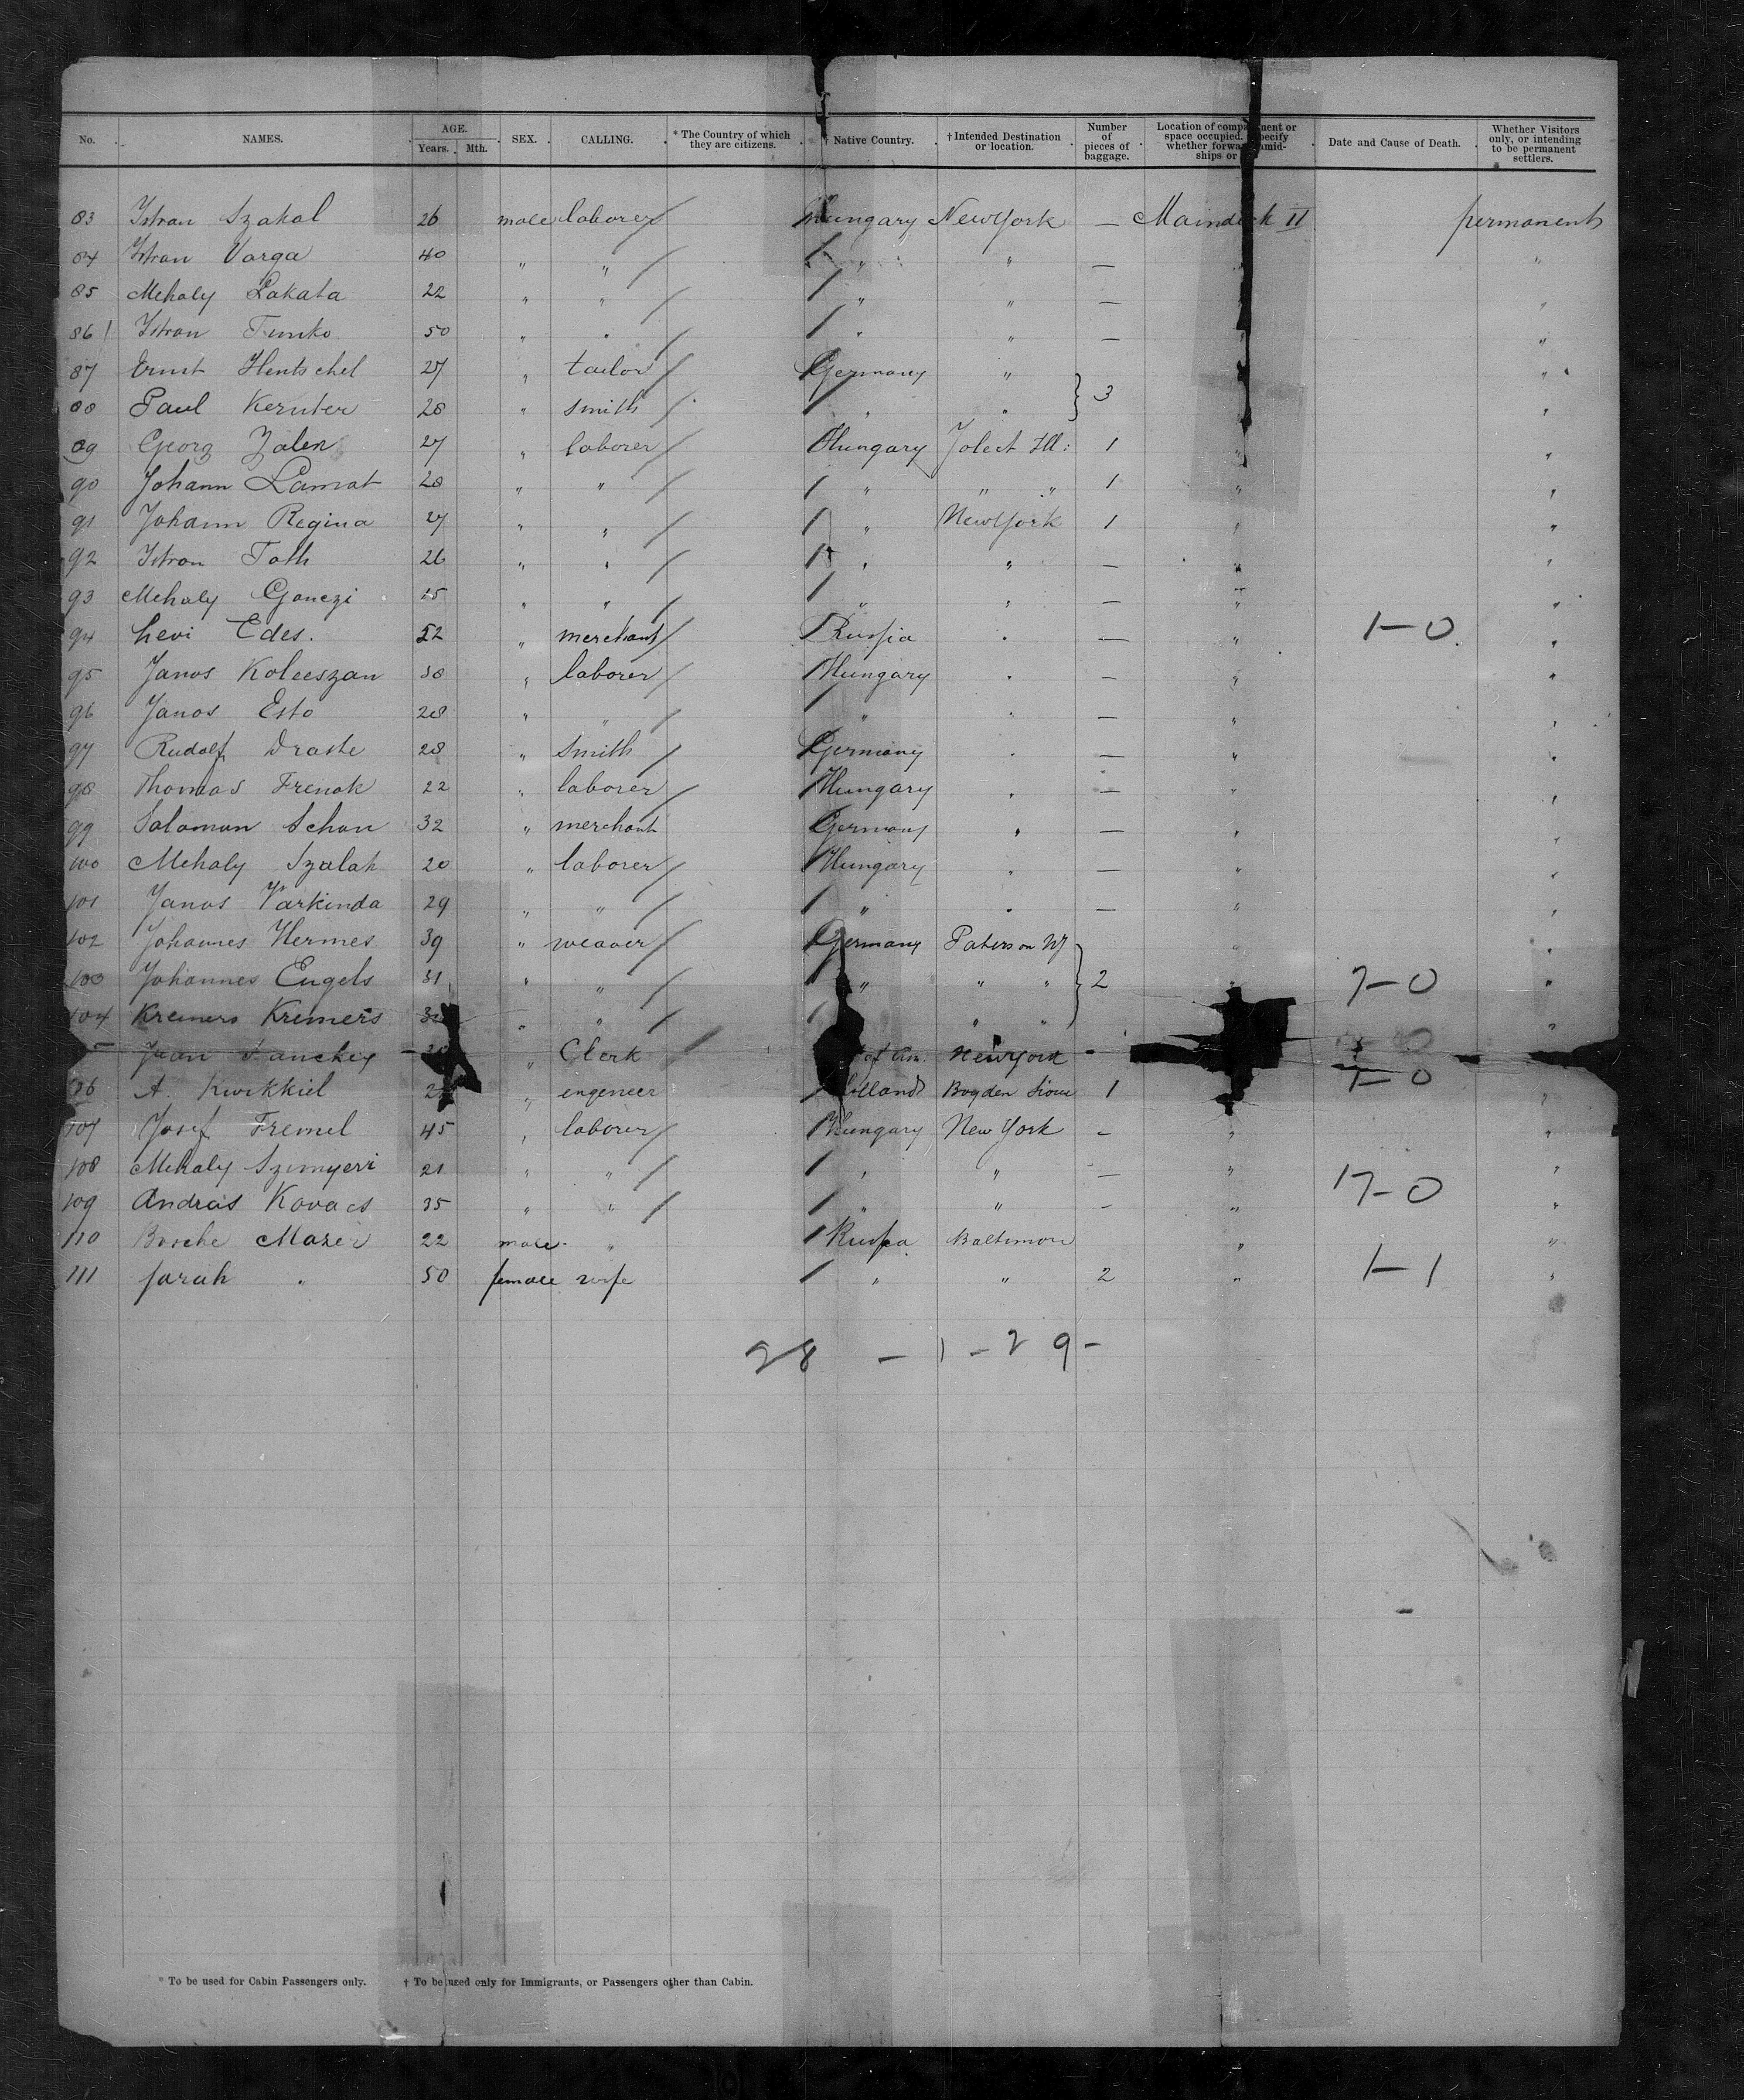 No. NAMES. AGE. Years. Mth. SEX. CALLING. * The Country of which they are citizens. † Native Country. † Intended Destination or location. Number of pieces of baggage. Location of compartment or space occupied. Specify whether forward, amidships or Date and Cause of Death. Whether Visitors only, or intending to be permanent settlers.
83 Istvan Szakal 26 male laborer Hungary New York — Maindeck II permanent
84 Istvan Varga 40 " " " " — "
85 Mehaly Lakata 22 " " " " — "
86 Istvan Timko 50 " " " " — "
87 Ernst Hentschel 27 " tailor Germany " "
88 Paul Kernter 28 " smith " " 3 "
89 Georg Zalen 27 " laborer Hungary Joleet Ill: 1 " "
90 Johann Lamat 28 " " " " " 1 " "
91 Johann Regina 27 " " " New York 1 " "
92 Istvan Toth 26 " " " " — " "
93 Mehaly Gonczi 15 " " " " — " "
94 Levi Edes. 52 " merchant Russia " — " 1-0 "
95 Janos Koleeszan 30 " laborer Hungary " — " "
96 Janos Esto 28 " " " " — " "
97 Rudolf Draste 28 " smith Germany " — " "
98 Thomas Frenak 22 " laborer Hungary " — " "
99 Salomon Schon 32 " merchant Germany " — " "
100 Mehaly Szalah 20 " laborer Hungary " — " "
101 Janos Varkinda 29 " " " " — " "
102 Johannes Hermes 39 " weaver Germany Paterson NJ " "
103 Johannes Engels 31 " " " " " 2 " 7-0 "
104 Kremers Kremers " " " " "
Juan Sanchez " Clerk of Am. New York -
106 A. Kwikkiel " engeneer Holland Bogden Sioux 1 1-0 "
107 Josef Fremel 45 " laborer Hungary New York - " "
108 Mehaly Szimyeri 21 " " " " — " "
109 Andras Kovacs 35 " " " " - " 17-0 "
110 Borche Mazer 22 male " Russia Baltimore " "
111 Sarah " 50 female wife " " 2 " 1-1 "
28 - 1 - 29 -
* To be used for Cabin Passengers only. † To be used only for Immigrants, or Passengers other than Cabin.